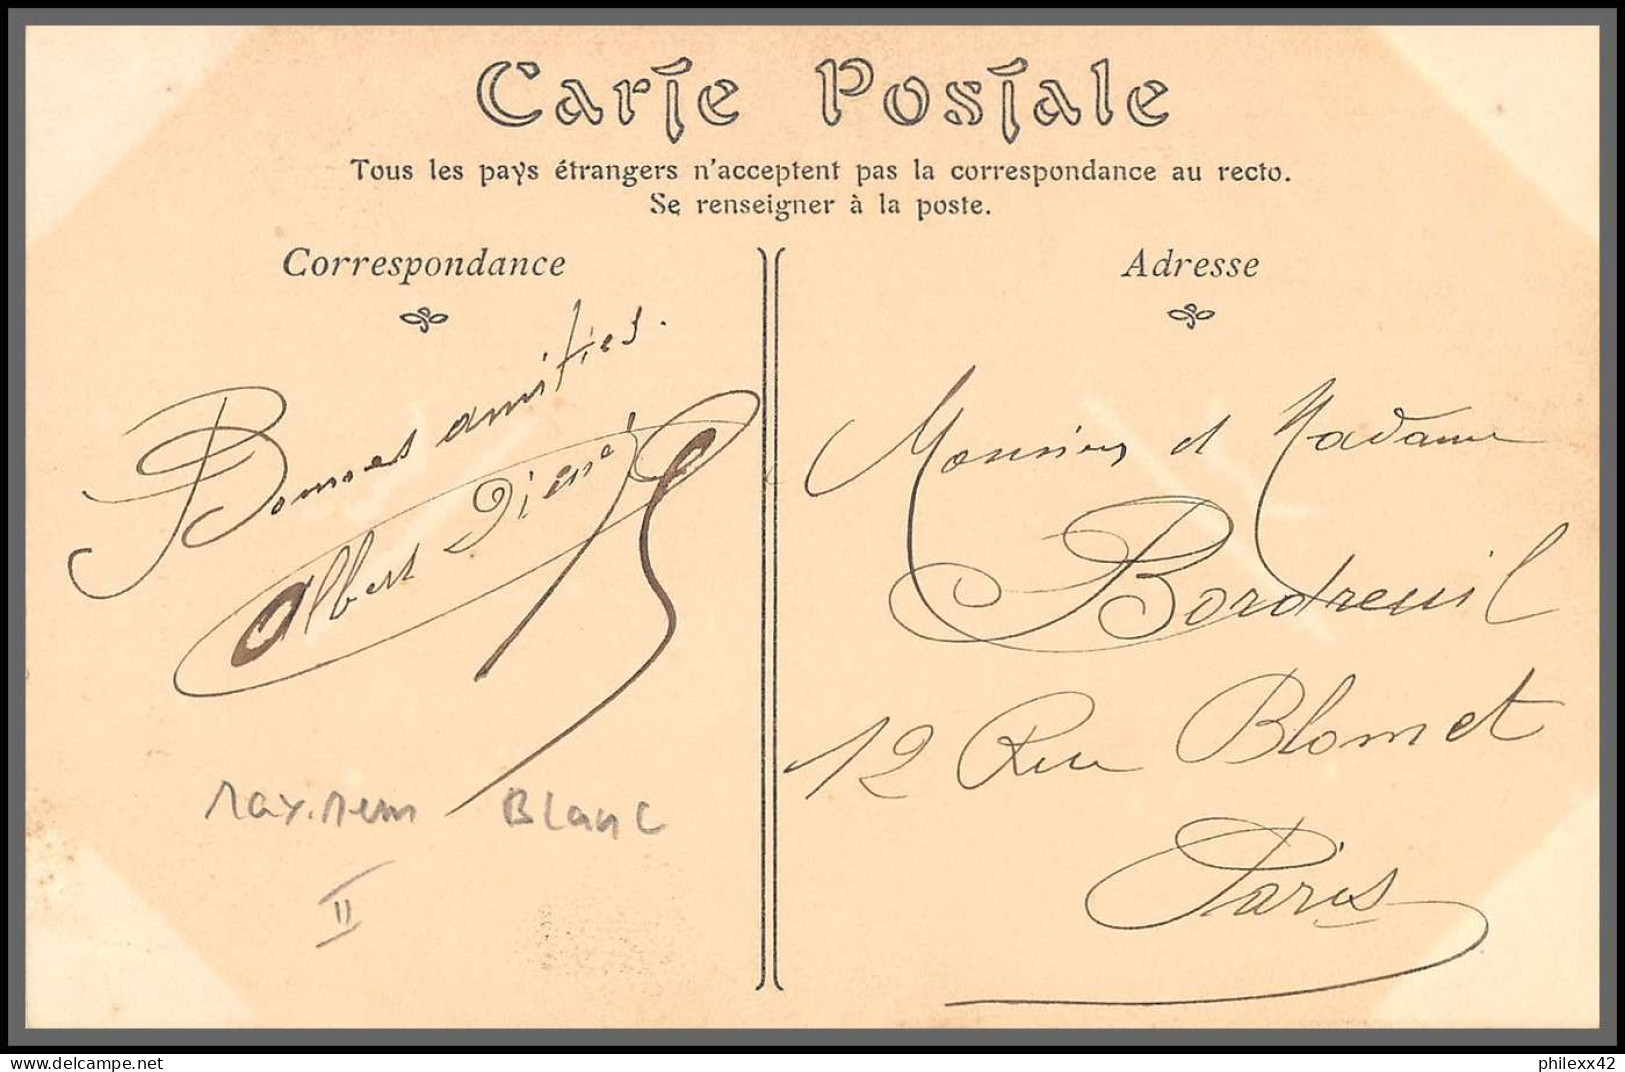 Carte Postale
Tous les pays étrangers n'acceptent pas la correspondance au recto.
Se renseigner à la poste.
Correspondance
Bonnes amitiés.
Albert
Blanc
II
Adresse
Monsieur et Madame
Bordreuil
12 Rue Blomet
Paris
philexx42